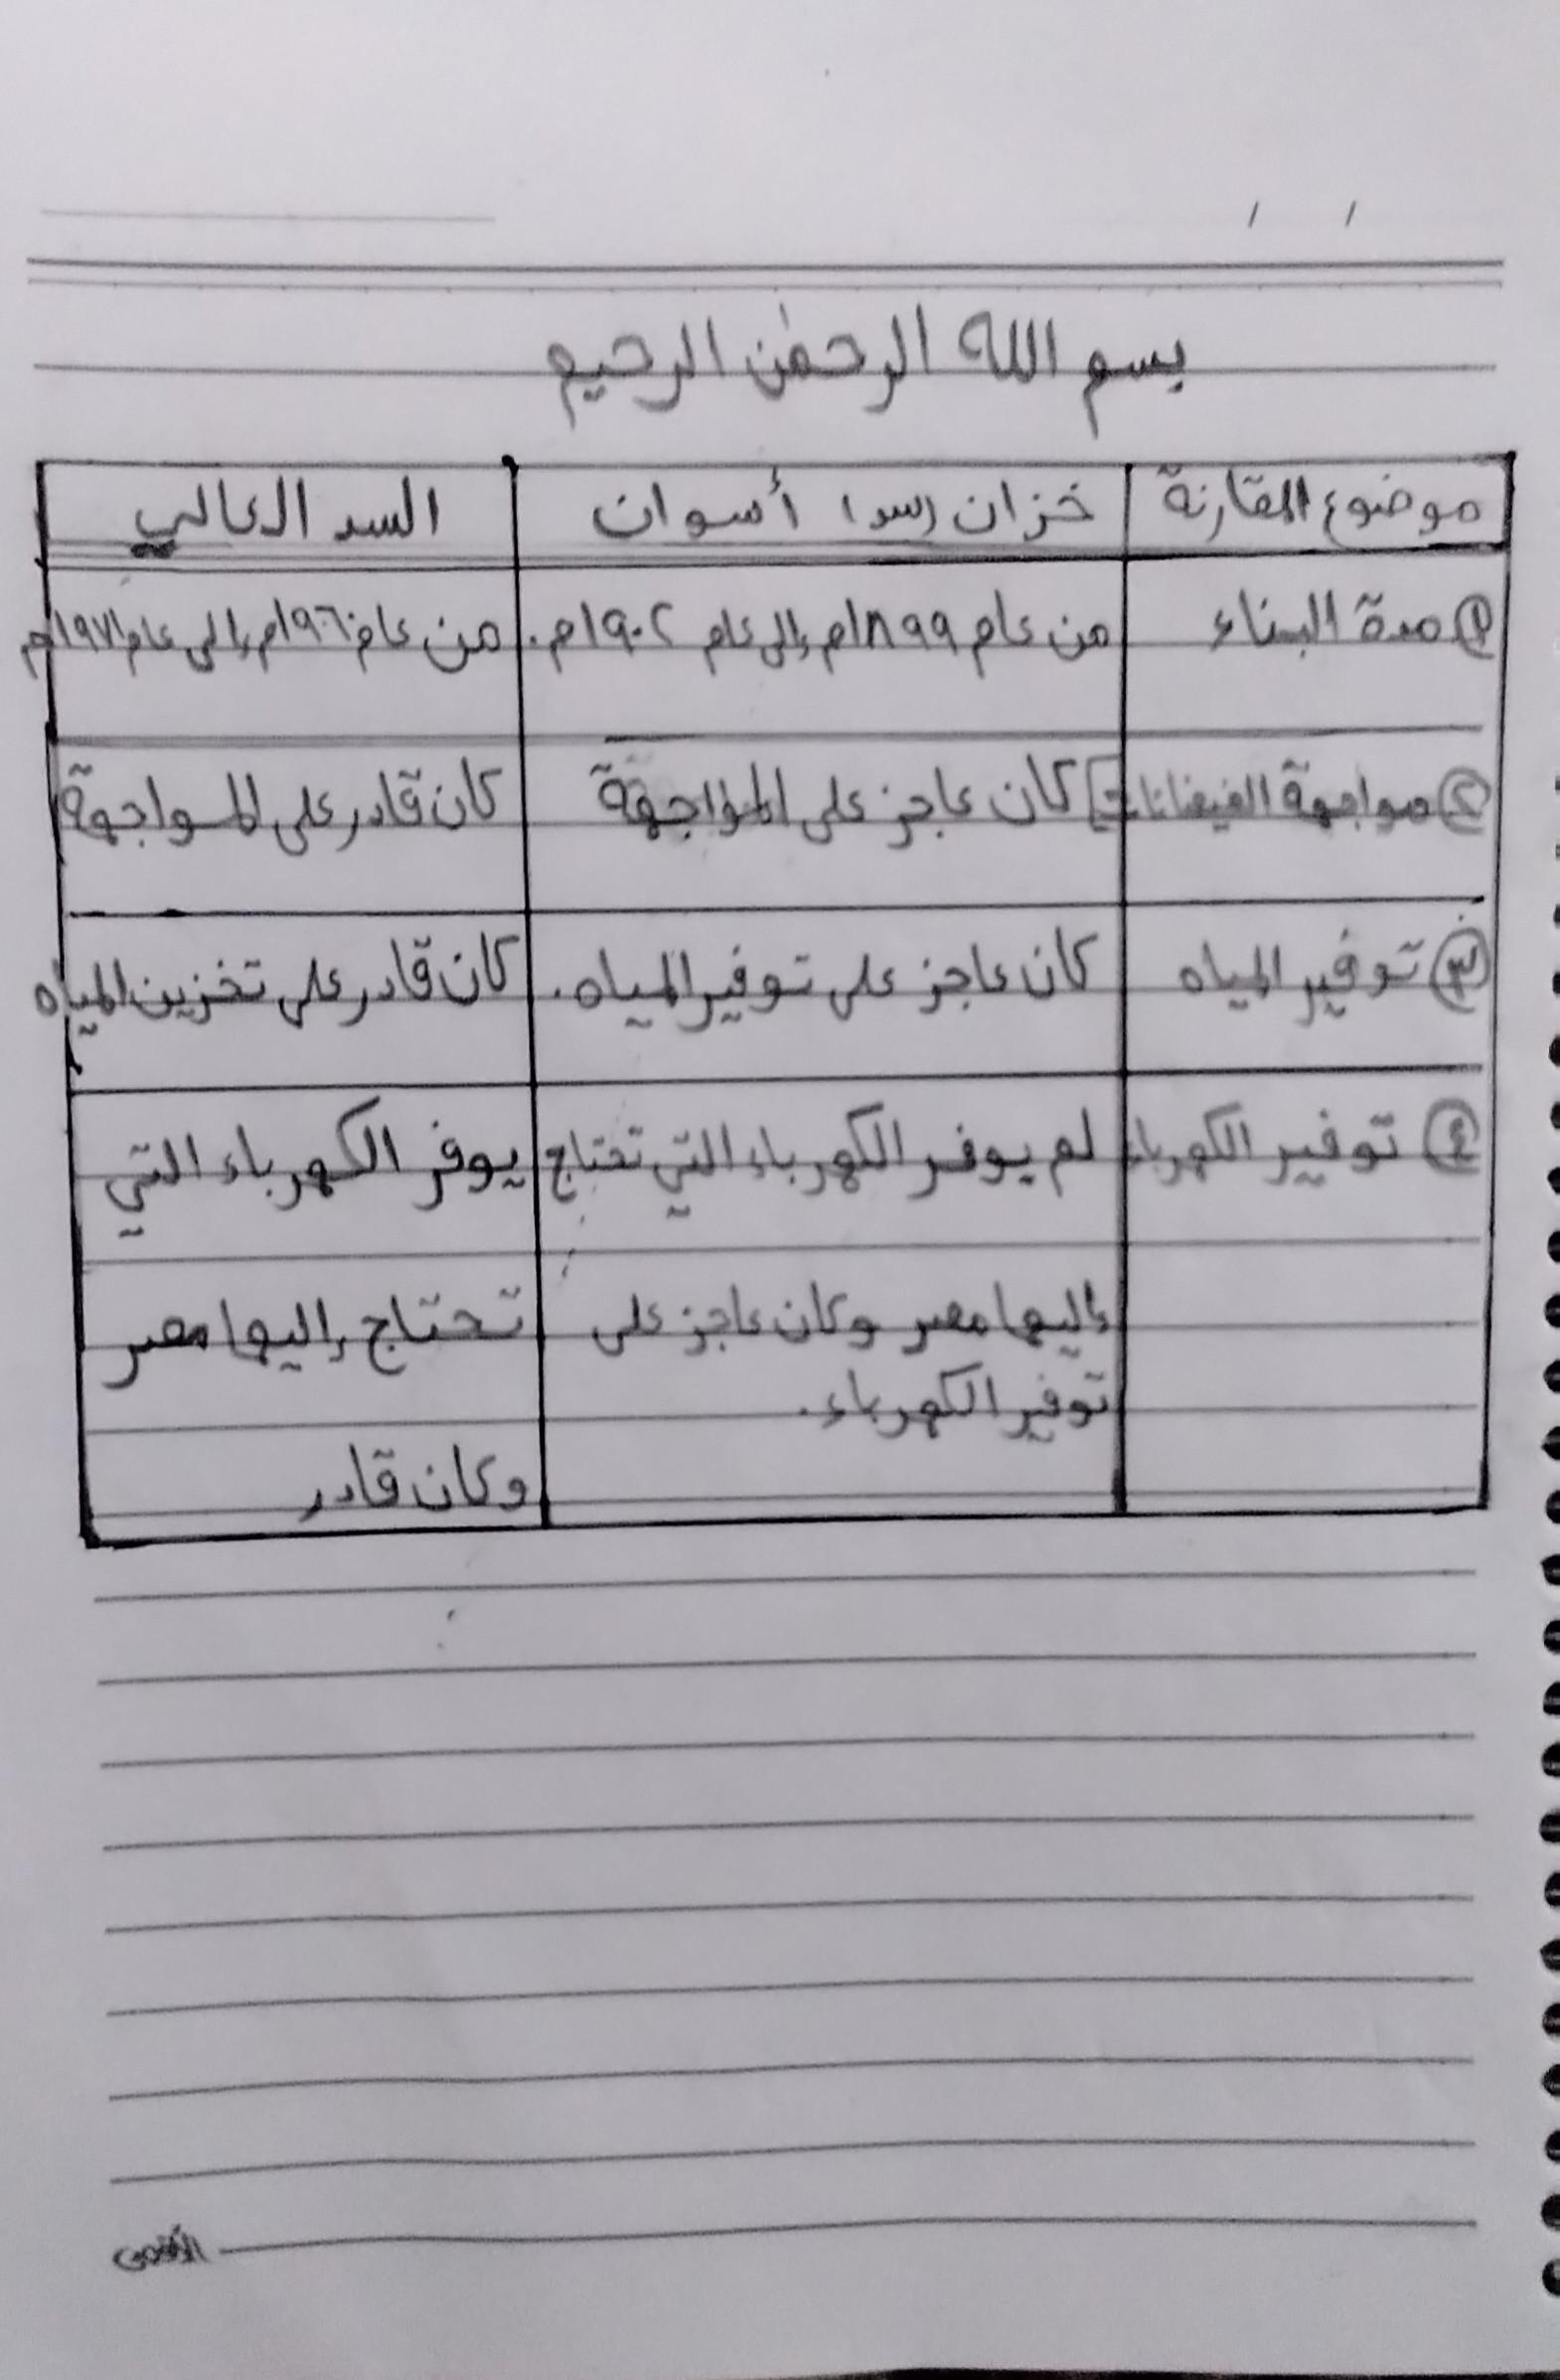 بسم الله الرحمٰن الرحيم
موضوع المقارنة خزان (سد) أسوان السد العالي
١ مدة البناء من عام ١٨٩٩م إلى عام ١٩٠٢م. من عام ١٩٦٠م إلى عام ١٩٧١م
٢ مواجهة الفيضانات كان عاجز على المواجهة كان قادر على المواجهة
٣ توفير المياه كان عاجز على توفير المياه. كان قادر على تخزين المياه
٤ توفير الكهرباء لم يوفر الكهرباء التي تحتاج يوفر الكهرباء التي
إليها مصر وكان عاجز على تحتاج إليها مصر
توفير الكهرباء.
وكان قادر